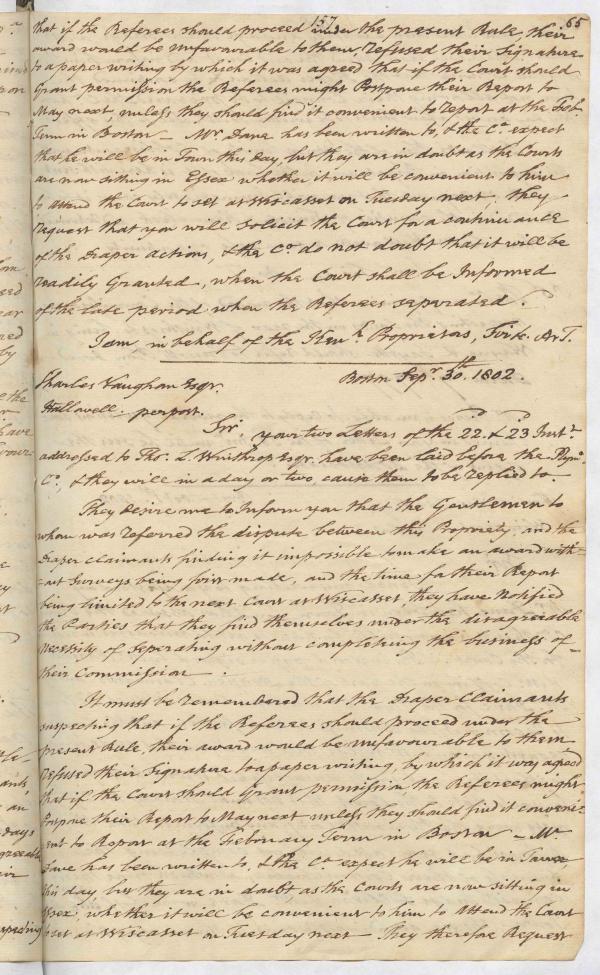 157
65
that if the Referees should proceed under the present Rule, their
award would be unfavourable to them, refused their Signature
to a paper writing by which it was agreed that if the Court should
Grant permission the Referees might Postpone their Report to
May next, unless they should find it convenient to report at the Feb.
Term in Boston — Mr. Dane has been written to, & the Co. expect
that he will be in Town this day, but they are in doubt as the Courts
are now sitting in Essex whether it will be convenient to him
to attend the Court to set at Wiscasset on Tuesday next, they
request that you will solicit the Court for a continuance
of the Draper actions, & the Co. do not doubt that it will be
readily Granted, when the Court shall be Informed
of the late period when the Referees seperated.
I am in behalf of the Kenk. Proprietors,
Boston Sepr. 30th. 1802.
Charles Vaughan Esqr.
Hallowell. per post.
Sir, your two Letters of the 22. & 23 Inst.
addressed to Tho. L. Winthrop Esqr. have been laid before the Plymo.
Co., & they will in a day or two cause them to be replied to.
They desire me to Inform you that the Gentlemen to
whom was referred the dispute between this Propriety and the
Draper Claimants finding it impossible to make an award with-
-out Surveys being first made, and the time for their Report
being limited to the next Court at Wiscasset, they have Notified
the Parties that they find themselves under the disagreeable
necessity of seperating without completing the business of
their Commission.
It must be remembered that the Draper Claimants
suspecting that if the Referees should proceed under the
present Rule, their award would be unfavourable to them
refused their Signature to a paper writing, by which it was agreed
that if the Court should Grant permission the Referees might
Postpone their Report to May next unless they should find it conveni-
ent to Report at the February Term in Boston — Mr
Dane has been written to, & the Co. expect he will be in Town
this day but they are in doubt, as the Courts are now sitting in
Essex, whether it will be convenient to him to Attend the Court
to set at Wiscasset on Tuesday next They therefore Request